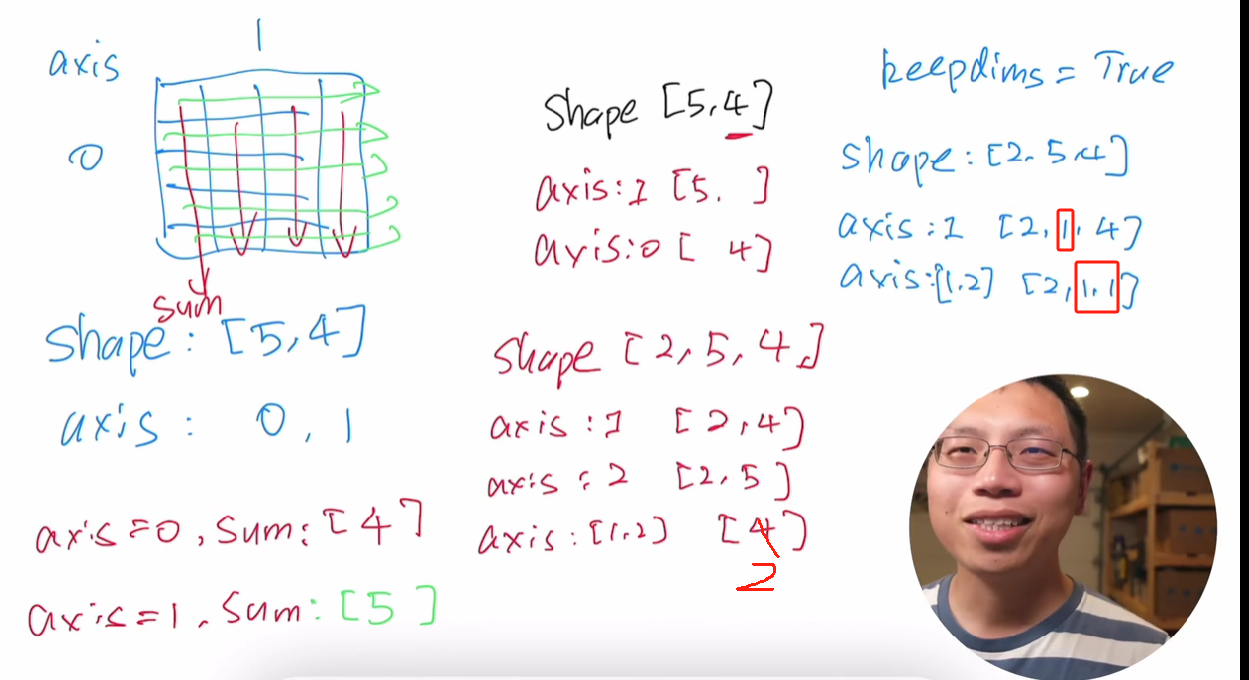 1
axis
0
sum
shape: [5,4]
axis: 0, 1
axis=0, sum: [4]
axis=1, sum: [5]
shape [5,4]
axis:1 [5. ]
axis:0 [ 4]
shape [2,5,4,]
axis:1 [2,4]
axis:2 [2,5]
axis:[1,2] [4]
2
keepdims = True
shape: [2.5.4]
axis:1 [2,1,4]
axis:[1.2] [2,1,1]